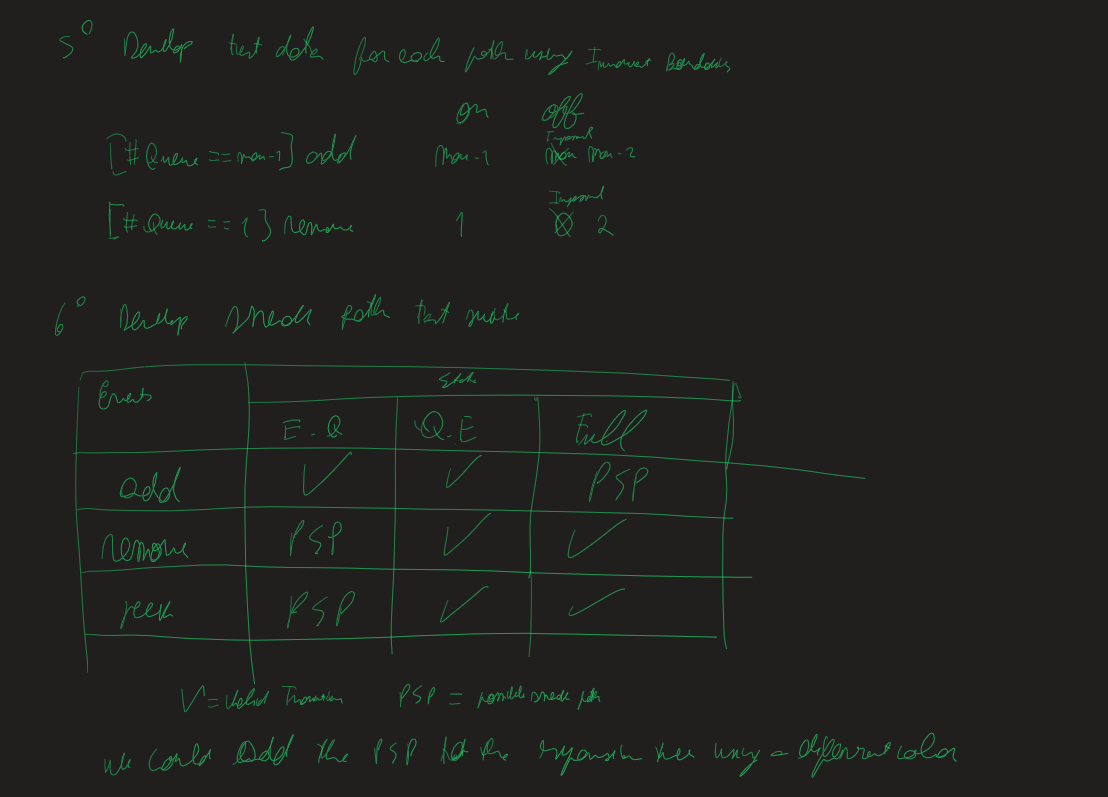 5° Develop test data for each path using Invariant Boundaries
on off
[#Queue == max-1] add max-1 max max-2
[#Queue == 1] remove 1 0 2
6° Develop sneak path test suite
Events State
E.Q Q.E Full
add ✓ ✓ PSP
remove PSP ✓ ✓
peek PSP ✓ ✓
✓ = Valid Transition PSP = possible sneak path
We could add the PSP to the expansion tree using a different color